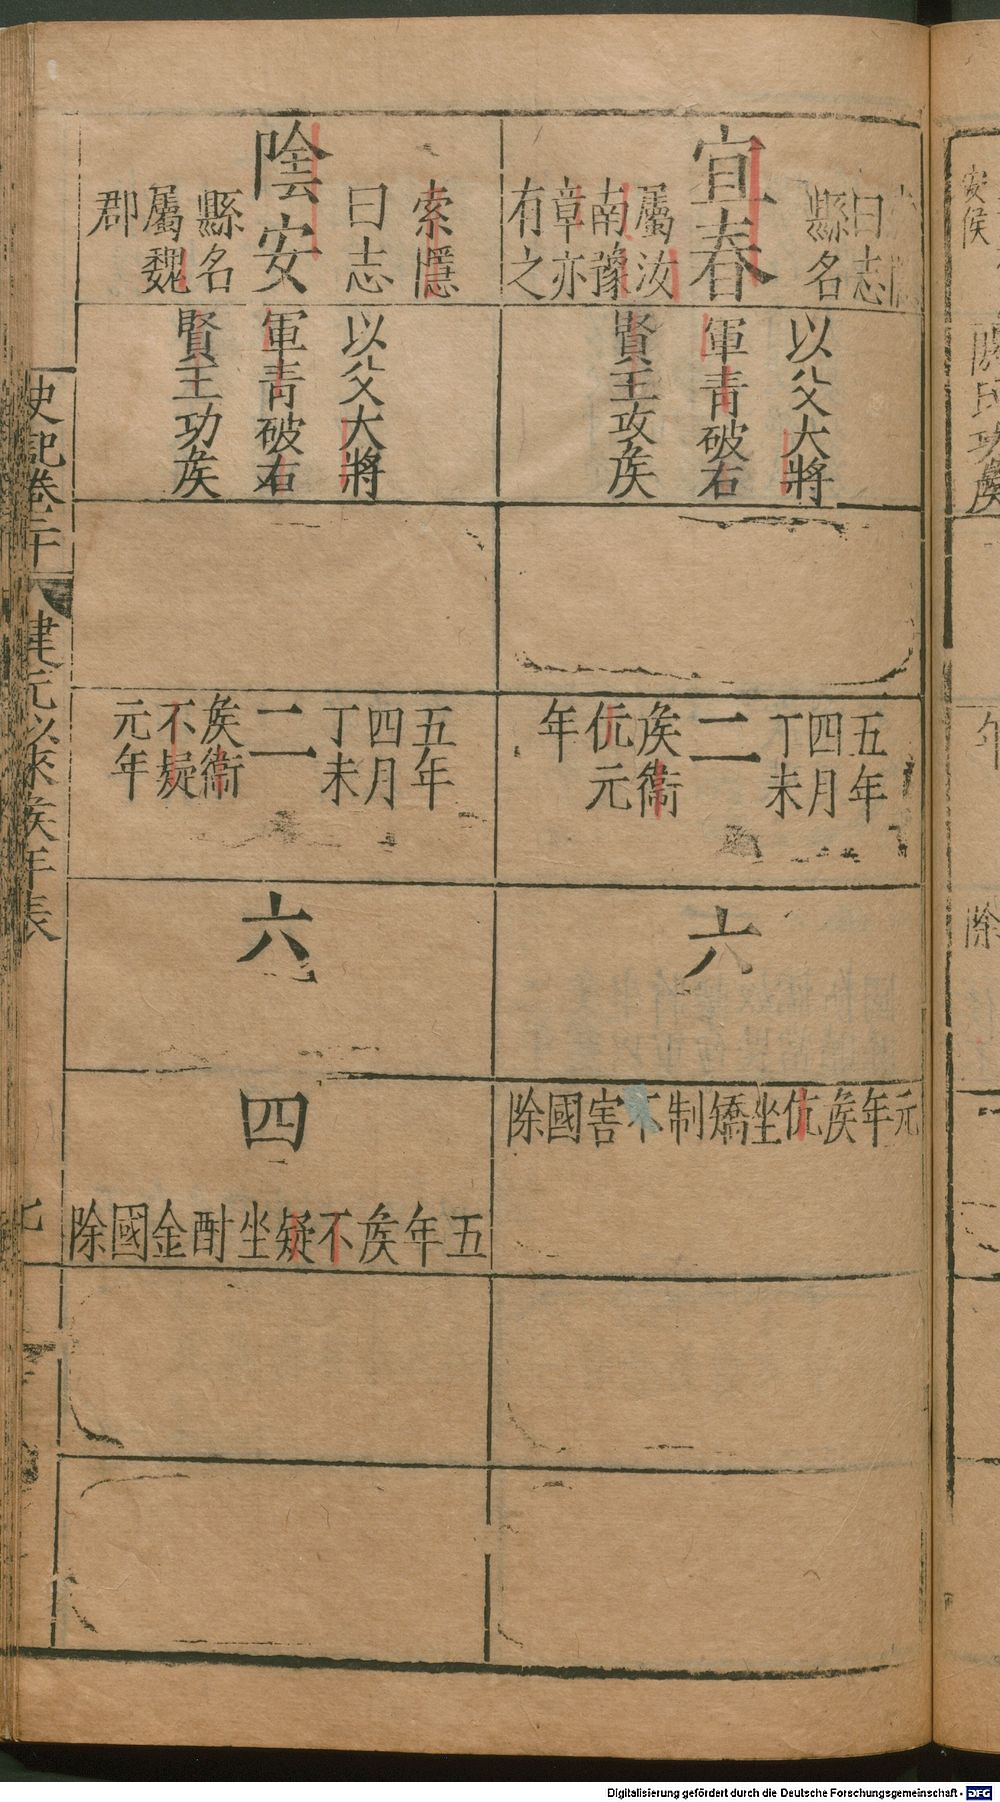 宜春
曰志
縣名
屬汝
南豫
章亦
有之
以父大將
軍青破右
賢王攻矦
五年
四月
丁未
二
矦衞
伉元
年
六
元年矦伉坐矯制不害國除
陰安
索隱
曰志
縣名
屬魏
郡
以父大將
軍青破右
賢王功矦
五年
四月
丁未
二
矦衞
不疑
元年
六
四
五年矦不疑坐酎金國除
史記卷二十
建元以來矦年表
七
安侯
年
除
Digitalisierung gefördert durch die Deutsche Forschungsgemeinschaft - DFG